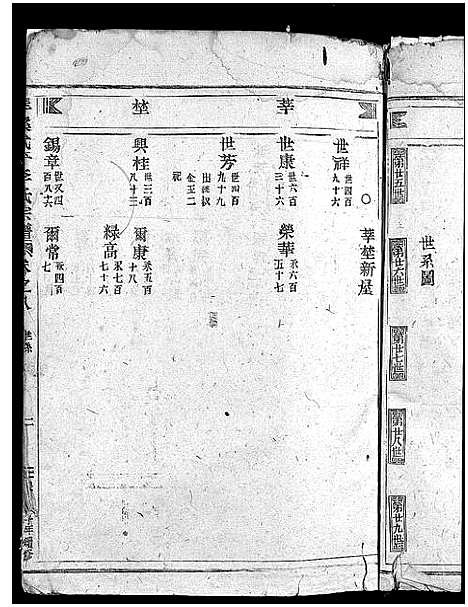 世系圖
第廿五世
第廿六世
第廿七世
第廿八世
第廿九世
莘埜
○ 莘埜新屋
世祥 世四百九十六
世康 世六百三十六
榮華 永六百五十七
世芳 世四百九十九 出繼 金玉二祀
興桂 世三百八十三
爾康 永五百十八
綠高 永七百七十六
錫章 世又四百八十六
爾常 永四百七